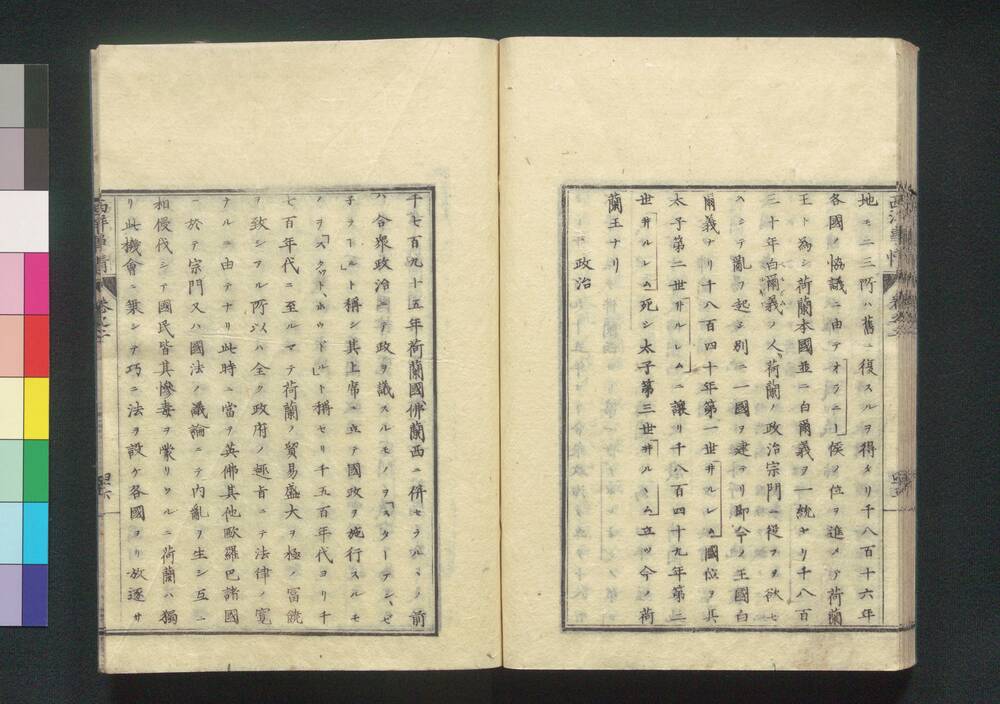 地モ二三所ハ舊ニ復スルヲ得タリ千八百十六年
各國ノ協議ニ由テ「オラニー」侯ノ位ヲ進メテ荷蘭
王ト為シ荷蘭本國並ニ白爾義ヲ一統セリ千八百
三十年白爾義ノ人、荷蘭ノ政治宗門ニ從フヲ欲セ
ズシテ亂ヲ起シ別ニ一國ヲ建テリ即今ノ王國白
爾義ナリ千八百四十年第一世「ヰルレム」國位ヲ其
太子第二世「ヰルレム」ニ讓リ千八百四十九年第二
世「ヰルレム」死シ太子第三世「ヰルレム」立ツ今ノ荷
蘭王ナリ
政治
千七百九十五年荷蘭國、佛蘭西ニ併セラルヽノ前
ハ合衆政治ニテ政ヲ議スルモノヲ「スターテン、ゼ
子ラール」ト稱シ其上席ニ立テ國政ヲ施行スルモ
ノヲ「スタットホウドル」ト稱セリ千五百年代ヨリ千
七百年代ニ至ルマテ荷蘭ノ貿易盛大ヲ極メ富饒
ヲ致シタル所以ハ全ク政府ノ趣旨ニテ法律ノ寛
ナルニ由テナリ此時ニ當テ英佛其他歐羅巴諸國
ニ於テ宗門又ハ國法ノ議論ニテ内亂ヲ生シ互ニ
相侵伐シテ國民皆其慘毒ヲ蒙リタルニ荷蘭ハ獨
リ此機會ニ乗シテ巧ニ法ヲ設ケ各國ヨリ放逐サ
西洋事情
卷之二
四六